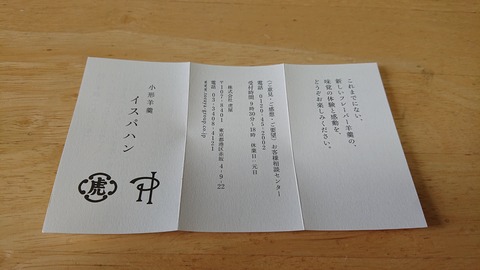 これまでにない、
新しいフレーバー羊羹の、
味覚の体験と感動を、
どうぞお楽しみください。
〈ご意見・ご感想・ご要望〉お客様相談センター
電話 0120-45-2002
受付時間 9時30分〜18時 休業日:元日
株式会社 虎屋
〒107-8401 東京都港区赤坂4-9-22
電話 03-3408-4121
www.toraya-group.co.jp
小形羊羹
イスパハン
虎
PH